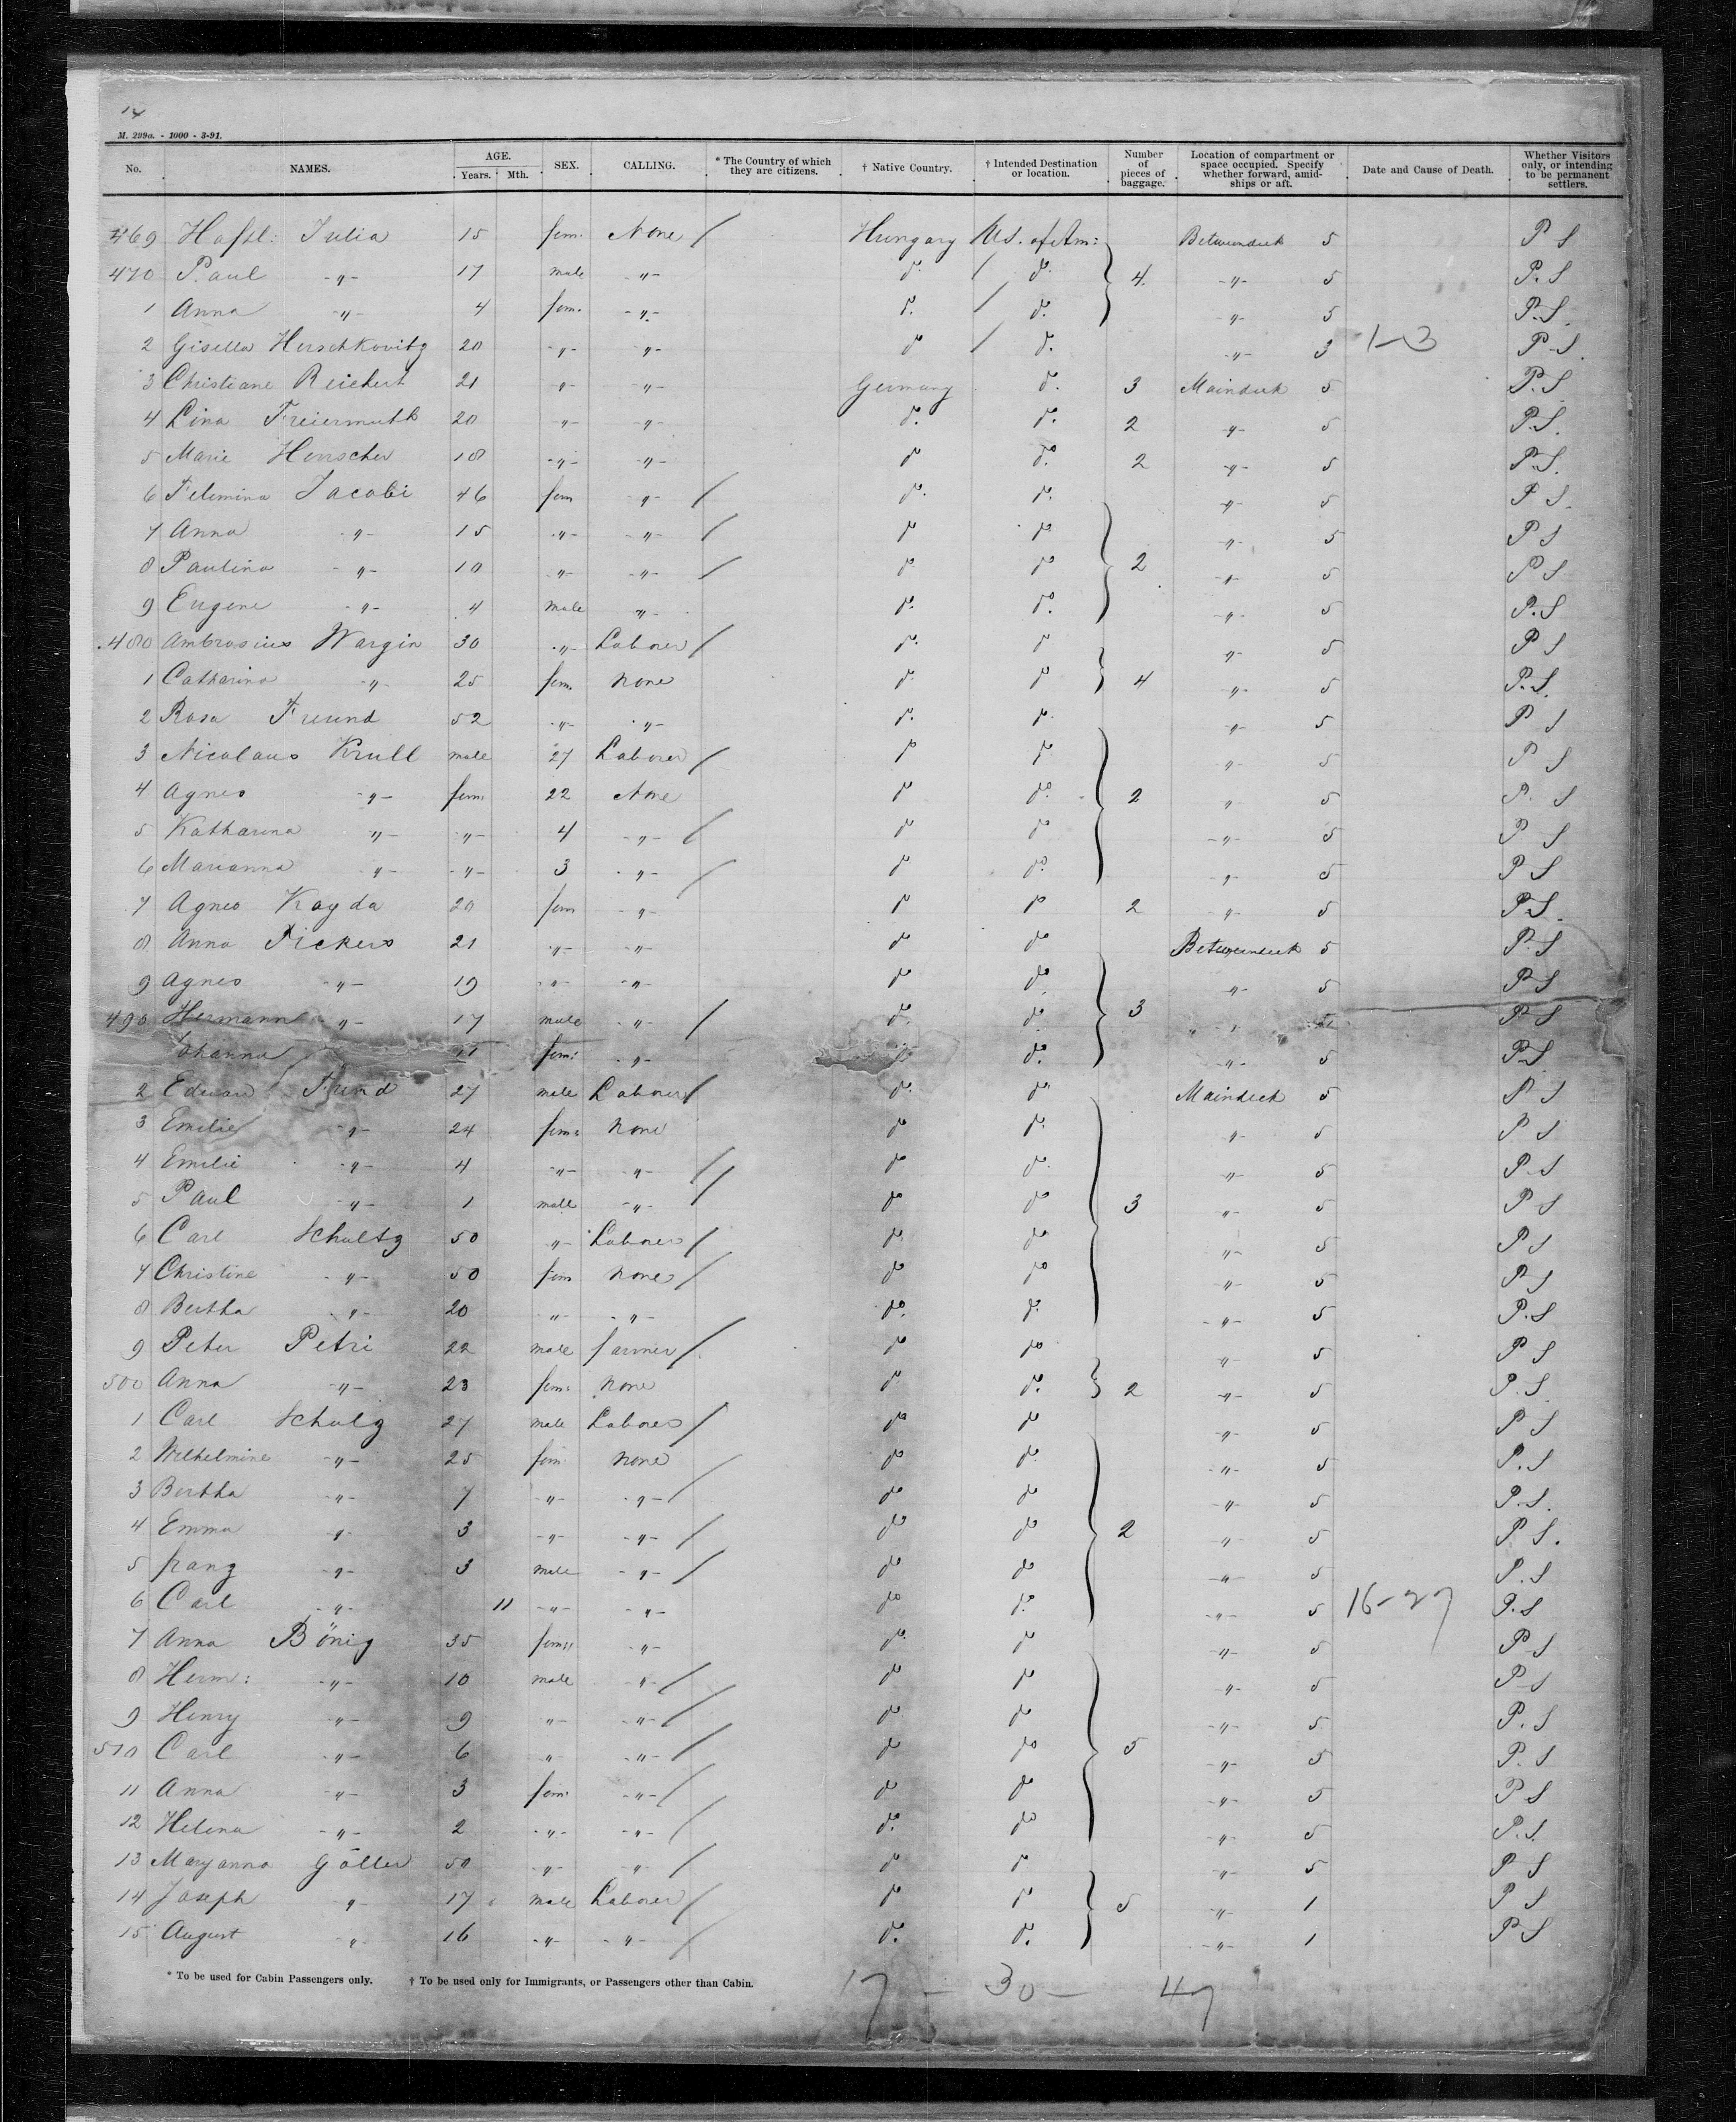 14
M. 299a. - 1000 - 3-91.
No. NAMES. AGE. Years. Mth. SEX. CALLING. * The Country of which they are citizens. † Native Country. † Intended Destination or location. Number of pieces of baggage. Location of compartment or space occupied. Specify whether forward, amidships or aft. Date and Cause of Death. Whether Visitors only, or intending to be permanent settlers.
469 Julia 15 fem. None / Hungary US. of Am: Betweendeck 5 P S
470 Paul -"- 17 male -"- do. / do. 4. -"- 5 P. S
1 Anna -"- 4 fem. -"- do. / do. -"- 5 P. S.
2 Gisella Herschkovitz 20 -"- -"- do / do. -"- 3 1-3 P S.
3 Christiane Reichert 21 -"- -"- Germany do. 3 Maindeck 5 P. S
4 Lina Freiermuth 20 -"- -"- do. do. 2 -"- 5 P. S.
5 Marie 18 -"- -"- do do. 2 -"- 5 P. S.
6 Jacobi 46 fem -"- / do. do. -"- 5 P S.
7 Anna -"- 15 -"- -"- / do do -"- 5 P S
8 Paulina -"- 10 -"- -"- / do do 2 -"- 5 P S
9 Eugene -"- 4 male -"- do. do. -"- 5 P. S
480 Ambrosius Wargin 30 -"- Laborer / do. do -"- 5 P S
1 Catharina -"- 25 fem. None do. do 4 -"- 5 P. S.
2 Rosa Freund 52 -"- -"- do. do. -"- 5 P S
3 Nicolaus Krull male 27 Laborer / do do -"- 5 P S
4 Agnes -"- fem. 22 None do do. 2 -"- 5 P. S
5 Katharina -"- -"- 4 -"- / do do -"- 5 P S
6 Marianna -"- -"- 3 -"- / do do. -"- 5 P S
7 Agnes Kayda 20 fem -"- do do 2 -"- 5 P. S.
8 Anna Fickers 21 -"- -"- do do Betweendeck 5 P. S
9 Agnes -"- 19 -"- -"- do do. -"- 5 P S
490 Hermann -"- 17 male -"- / do. do. 3 -"- P S
Johanna 11 fem: -"- do. -"- 5 P. S
2 27 male Laborer / do. do. Maindeck 5 P S
3 Emilie -"- 24 fem: None do do. -"- 5 P S
4 Emilie -"- 4 -"- -"- / do do. -"- 5 P. S
5 Paul -"- 1 male -"- / do do 3 -"- 5 P S
6 Carl Schultz 50 -"- Laborer / do do -"- 5 P S
7 Christine -"- 50 fem None / do do -"- 5 P S
8 Bertha -"- 20 -"- -"- do. do. -"- 5 P. S
9 Peter Petri 22 male farmer / do do -"- 5 P S
500 Anna -"- 23 fem: None do do. 2 -"- 5 P. S.
1 Carl Schulz 27 male Laborer / do do -"- 5 P S
2 Wilhelmine -"- 25 fem None do do. -"- 5 P. S
3 Bertha -"- 7 -"- -"- / do do -"- 5 P. S.
4 Emma -"- 3 -"- -"- / do do 2 -"- 5 P S.
5 franz -"- 3 male -"- / do do -"- 5 P. S
6 Carl -"- 11 -"- -"- do do. -"- 5 16-27 P. S
7 Anna Bönig 35 fem: -"- do. do -"- 5 P S
8 Herm: -"- 10 male -"- / do do -"- 5 P S
9 Henry -"- 9 -"- -"- / do do -"- 5 P. S
510 Carl -"- 6 -"- -"- / do do 5 -"- 5 P. S
11 Anna -"- 3 fem: -"- / do do -"- 5 P S
12 Helena -"- 2 -"- -"- / do. do -"- 5 P. S.
13 Maryanna Göller 50 -"- -"- / do do -"- 5 P S
14 Joseph -"- 17 male Laborer / do do 5 -"- 1 P S
15 August -"- 16 -"- -"- / do. do. -"- 1 P S
* To be used for Cabin Passengers only. † To be used only for Immigrants, or Passengers other than Cabin.
17 - 30 - 47